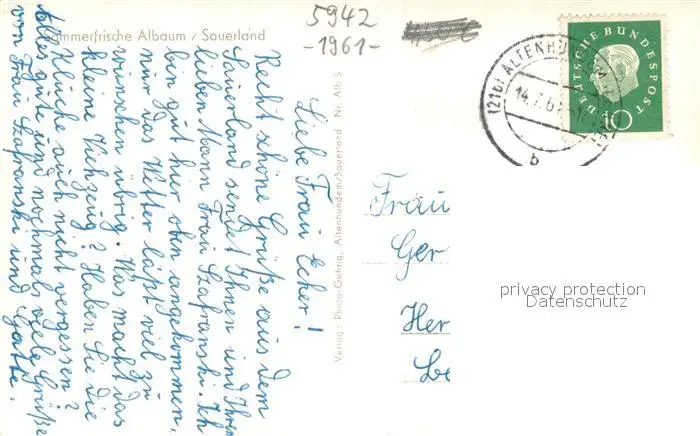 Sommerfrische Albaum / Sauerland
5942
-1961-
(21b) ALTENHUNDEM
14.7.61
b
DEUTSCHE BUNDESPOST
10
Liebe Frau Echer!
Recht schöne Grüße aus dem
Sauerland sendet Ihnen und Ihrem
lieben Mann Frau Szafranski. Ich
bin gut hier oben angekommen,
nur das Wetter läßt viel zu
wünschen übrig. Was macht das
kleine Viehzeug? Haben Sie die
Klüche auch nicht vergessen?
Alles gute und nochmals viele Grüße
von Frau Szafranski und Gatte.
Verlag: Photo-Gehrig, Altenhundem/Sauerland Nr. Alb 5
Frau
Ger
Her
Be
privacy protection
Datenschutz